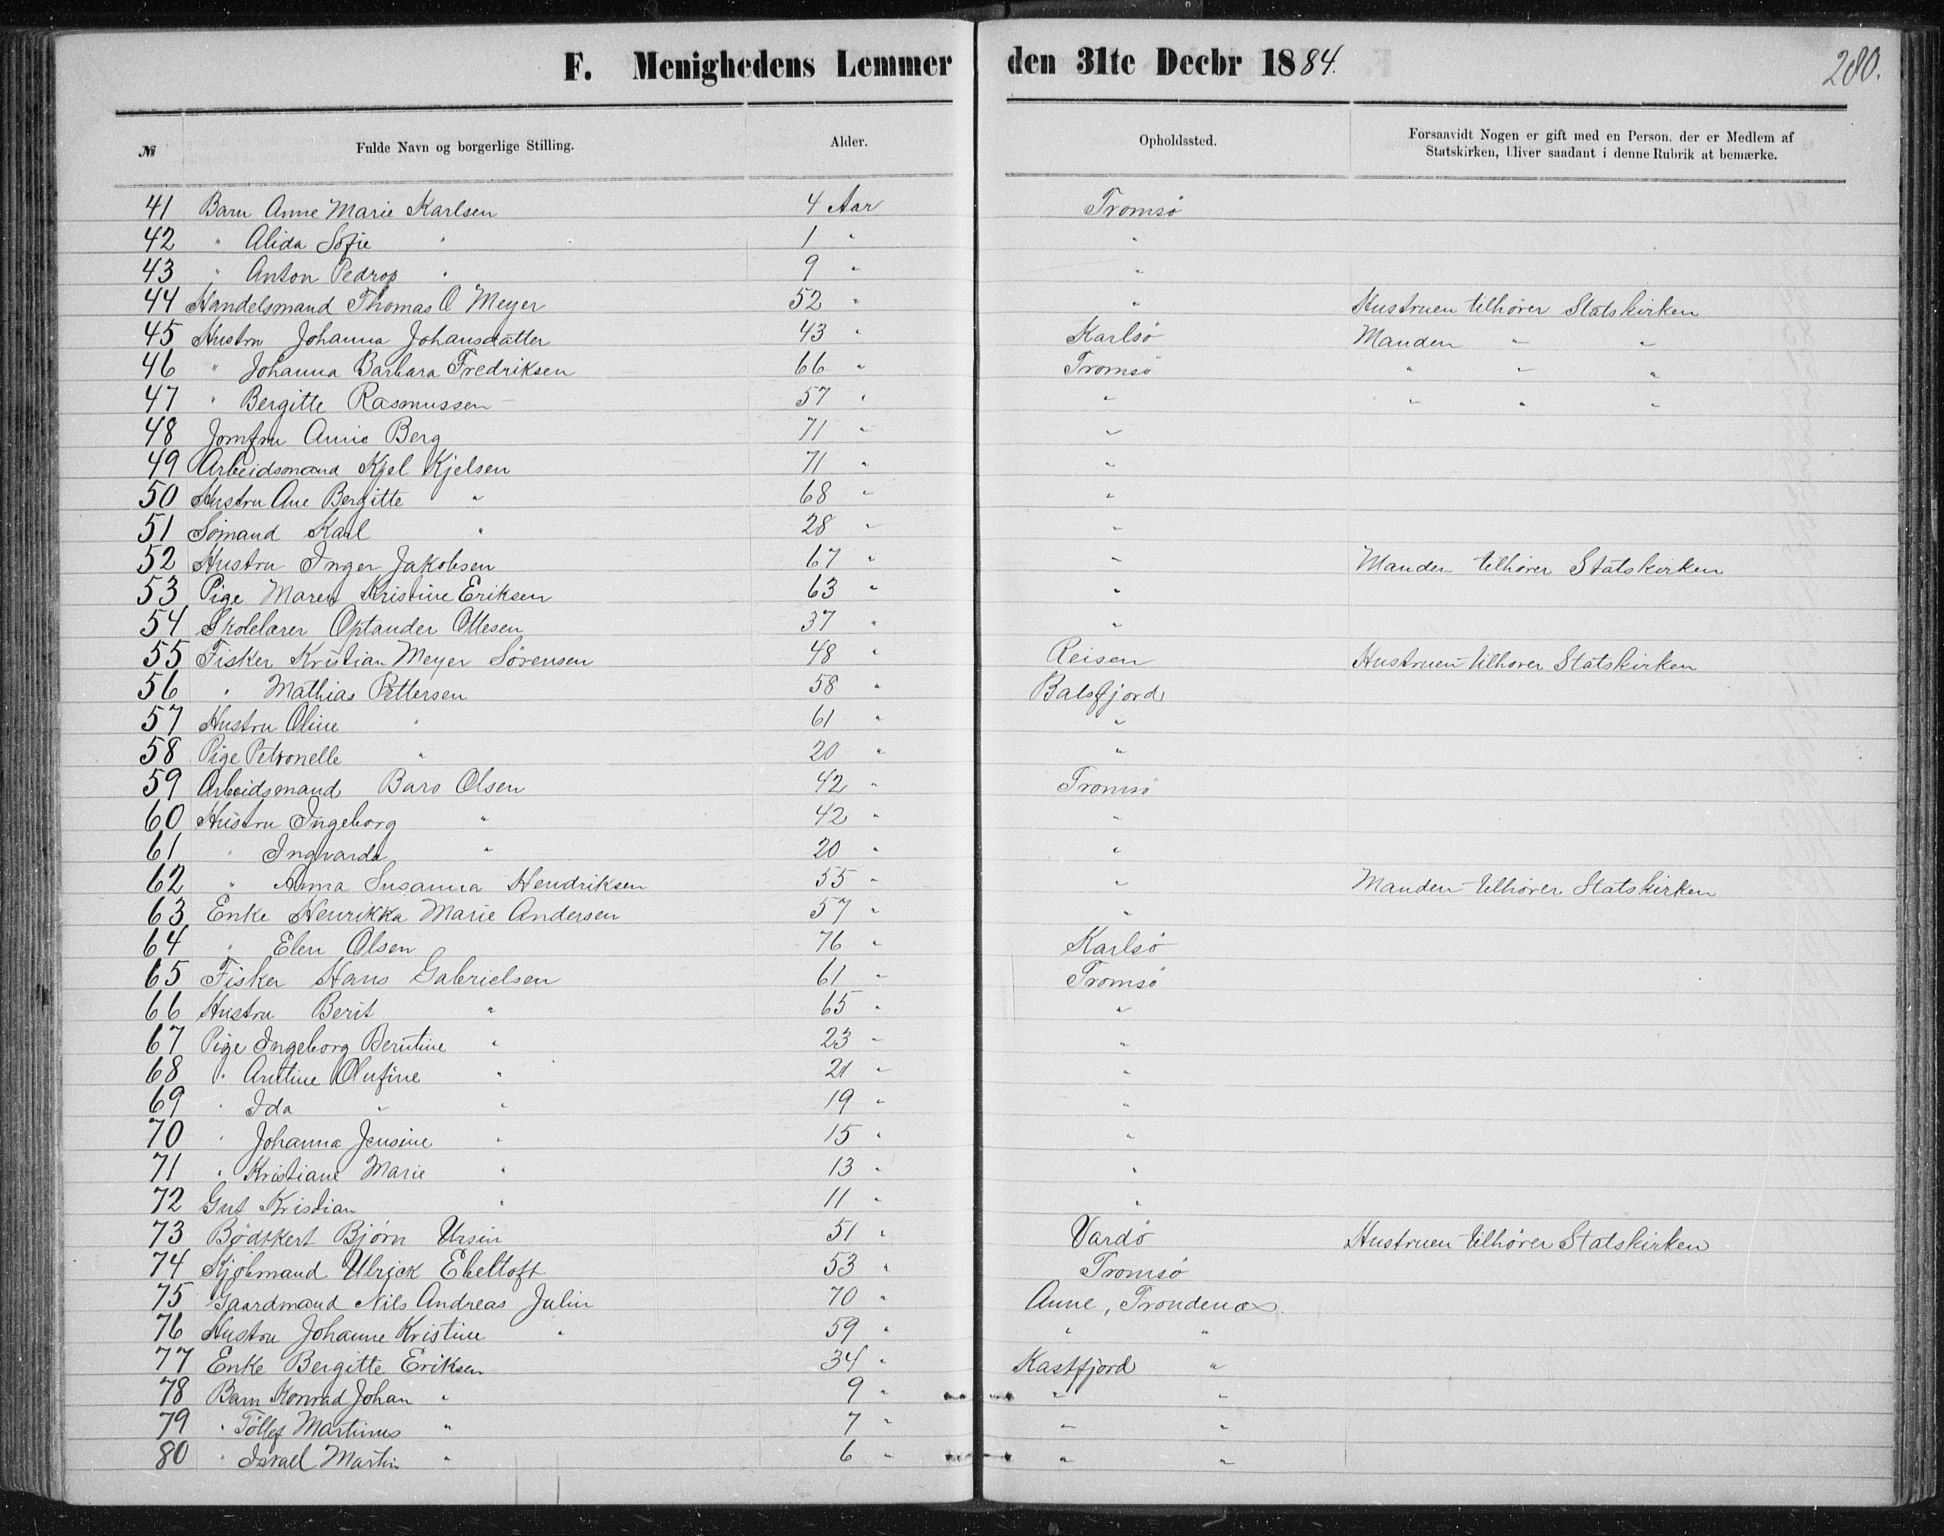 F. Menighedens Lemmer den 31te Decbr 1884. 280.
№ Fulde Navn og borgerlige Stilling. Alder. Opholdssted. Forsaavidt Nogen er gift med en Person, der er Medlem af
Statskirken, bliver saadant i denne Rubrik at bemærke.
41 Barn Anne Marie Karlsen 4 Aar Tromsø
42 " Alida Sofie " 1 " "
43 " Anton Pedrop " 9 " "
44 Handelsmand Thomas O Meyer 52 " " Hustruen tilhører Statskirken
45 Hustru Johanna Johansdatter 43 " Karlsø Manden " "
46 " Johanna Barbara Fredriksen 66 " Tromsø " " "
47 " Bergitte Rasmussen 57 " " " " "
48 Jomfru Anne Berg 71 " "
49 Arbeidsmand Kjel Kjelsen 71 " "
50 Hustru Ane Bergitte " 68 " "
51 Sømand Karl " 28 " "
52 Hustru Inger Jakobsen 67 " " Manden tilhører Statskirken
53 Pige Maren Kristine Eriksen 63 " "
54 Skolelærer Optander Ottesen 37 " "
55 Fisker Kristian Meyer Sørensen 48 " Reisen Hustruen tilhører Statskirken
56 " Mathias Pettersen 58 " Balsfjord
57 Hustru Oline " 61 " "
58 Pige Petronelle " 20 " "
59 Arbeidsmand Baro Olsen 42 " Tromsø
60 Hustru Ingeborg " 42 " "
61 " Ingvarda " 20 " "
62 " Anna Susanna Hendriksen 55 " " Manden tilhører Statskirken
63 Enke Henrikka Marie Andersen 57 " "
64 " Elen Olsen 76 " Karlsø
65 Fisker Hans Gabrielsen 61 " Tromsø
66 Hustru Berit " 65 " "
67 Pige Ingeborg Berntine " 23 " "
68 " Antine Olufine " 21 " "
69 " Ida " " 19 " "
70 " Johanna Jensine " 15 " "
71 " Kristiane Marie " 13 " "
72 Gut Kristian " 11 " "
73 Bødtkert Bjørn Ursin 51 " Vardø Hustruen tilhører Statskirken
74 Kjøbmand Ulrick Ebeltoft 53 " Tromsø
75 Gaardmand Nils Andreas Julin 70 " Anne, Trondenæs.
76 Hustru Johanne Kristine " 59 " " "
77 Enke Bergitte Eriksen 34 " Kastfjord "
78 Barn Konrad Johan " 9 " " "
79 " Tøllef Martinus " 7 " " "
80 " Israel Martin " 6 " " "